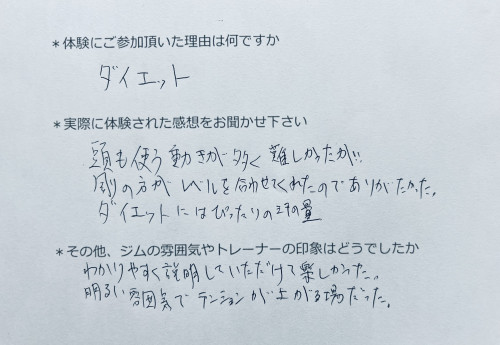 ＊体験にご参加頂いた理由は何ですか
ダイエット
＊実際に体験された感想をお聞かせ下さい
頭も使う動きが多く難しかったが!!
周りの方がレベルを合わせてくれたのでありがたかった。
ダイエットにはぴったりの汗の量
＊その他、ジムの雰囲気やトレーナーの印象はどうでしたか
わかりやすく説明していただけて楽しかった。
明るい雰囲気でテンションが上がる場だった。